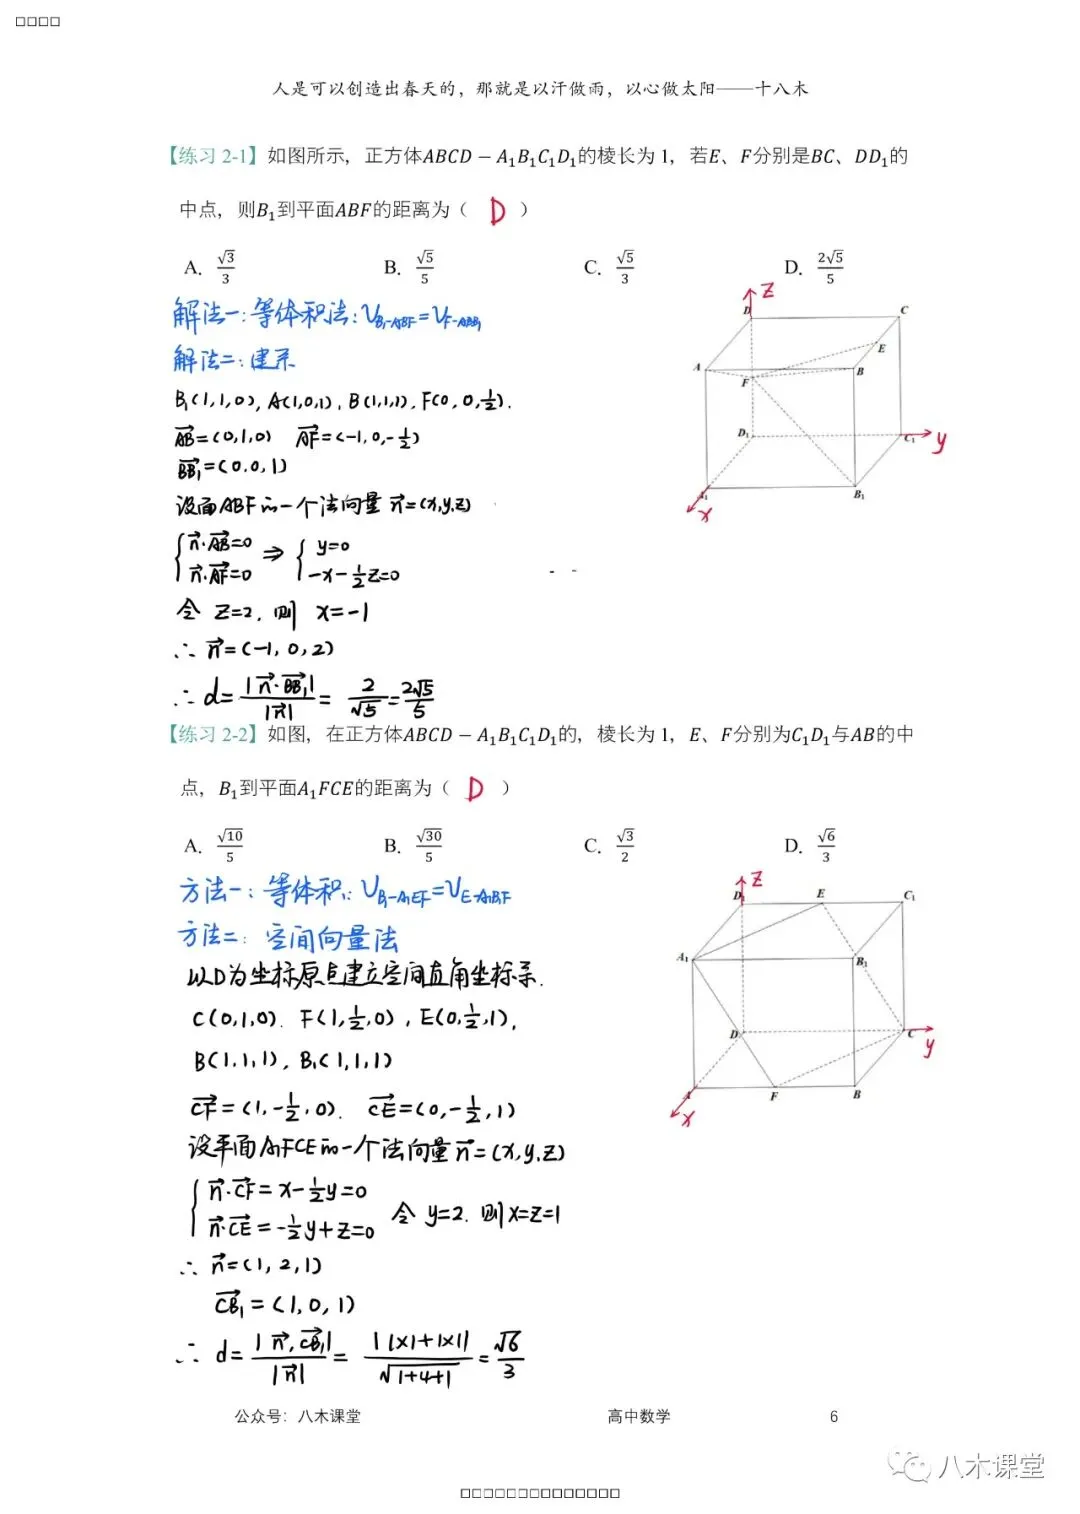 □□□□
人是可以创造出春天的，那就是以汗做雨，以心做太阳——十八木
【练习 2-1】如图所示，正方体ABCD − A₁B₁C₁D₁的棱长为 1，若E、F分别是BC、DD₁的
中点，则B₁到平面ABF的距离为（ D ）
A. √3/3 B. √5/5 C. √5/3 D. 2√5/5
解法一：等体积法：V_{B₁-ABF}=V_{F-ABB₁}
解法二：建系
B₁(1,1,0), A(1,0,1), B(1,1,1), F(0,0,½).
AB→=(0,1,0) AF→=(-1,0,-½)
BB₁→=(0,0,1)
设面ABF的一个法向量 n→=(x,y,z)
{ n→·AB→=0 ⇒ { y=0
n→·AF→=0 -x-½z=0
令 z=2, 则 x=-1
∴ n→=(-1,0,2)
∴ d= |n→·BB₁→|/|n→| = 2/√5 = 2√5/5
z
D
C
E
A
B
F
D₁
C₁
y
A₁
B₁
x
【练习 2-2】如图，在正方体ABCD − A₁B₁C₁D₁的，棱长为 1，E、F分别为C₁D₁与AB的中
点，B₁到平面A₁FCE的距离为（ D ）
A. √10/5 B. √30/5 C. √3/2 D. √6/3
方法一：等体积：V_{B₁-A₁EF}=V_{E-A₁B₁F}
方法二：空间向量法
以D为坐标原点建立空间直角坐标系.
C(0,1,0). F(1,½,0), E(0,½,1),
B(1,1,1), B₁(1,1,1)
CF→=(1,-½,0). CE→=(0,-½,1)
设平面A₁FCE的一个法向量 n→=(x,y,z)
{ n→·CF→=x-½y=0
n→·CE→=-½y+z=0 令 y=2. 则x=z=1
∴ n→=(1,2,1)
CB₁→=(1,0,1)
∴ d= |n→,CB₁→|/|n→| = |1×1+1×1|/√(1+4+1) = √6/3
z
D₁
E
C₁
A₁
B₁
D
C
y
A
F
B
x
公众号：八木课堂 高中数学 6
八木课堂
□□□□□□□□□□□□□□